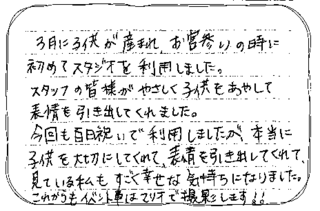 3月に子供が産まれ、お宮参りの時に
初めてスタジオを利用しました。
スタッフの皆様がやさしく子供をあやして
表情を引き出してくれました。
今回も百日祝いで利用しましたが、本当に
子供を大切にしてくれて、表情を引き出してくれて、
見ている私もすごく幸せな気持ちになりました。
これからもイベント事はマリオで撮影します!!